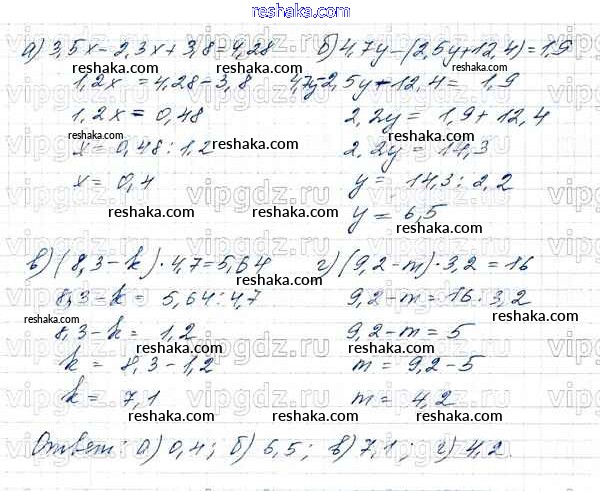 reshaka.com
а) 3,5x - 2,3x + 3,8 = 4,28
1,2x = 4,28 - 3,8
1,2x = 0,48
reshaka.com
x = 0,48 : 1,2
reshaka.com
x = 0,4
reshaka.com
б) 4,7y - (2,5y + 12,4) = 1,9
reshaka.com
4,7y - 2,5y - 12,4 = 1,9
reshaka.com
2,2y = 1,9 + 12,4
reshaka.com
2,2y = 14,3
reshaka.com
y = 14,3 : 2,2
y = 6,5
reshaka.com
в) (8,3 - k) · 4,7 = 5,64
reshaka.com
8,3 - k = 5,64 : 4,7
reshaka.com
8,3 - k = 1,2
reshaka.com
k = 8,3 - 1,2
reshaka.com
k = 7,1
reshaka.com
г) (9,2 - m) · 3,2 = 16
reshaka.com
9,2 - m = 16 : 3,2
reshaka.com
9,2 - m = 5
reshaka.com
m = 9,2 - 5
reshaka.com
m = 4,2
reshaka.com
Ответ: а) 0,4; б) 6,5; в) 7,1; г) 4,2.
vipgdz.ru